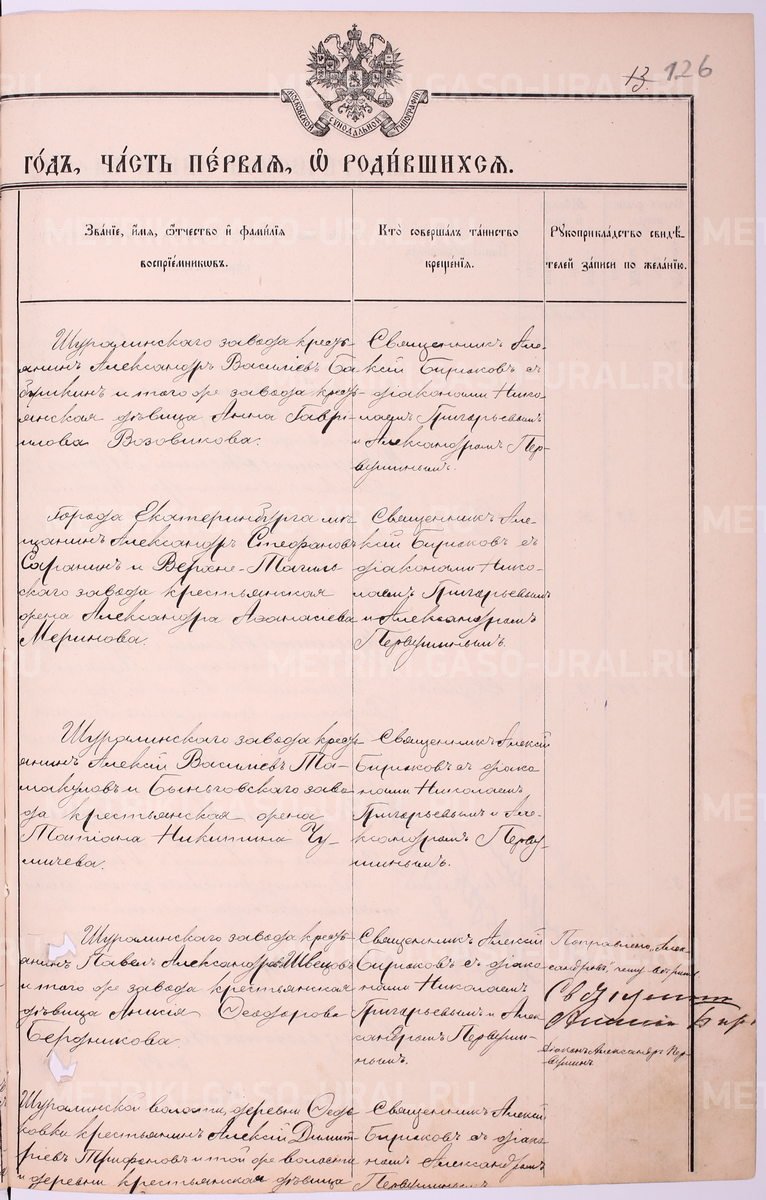 13. 126
МОСКОВСКОЙ СѴНОДАЛЬНОЙ ТИПОГРАФІИ
ГО́ДЪ, ЧА́СТЬ ПЕ́РВАЯ, Ѡ РОДИ́ВШИХСЯ.
Зва́нїе, и́мя, ѻ҆́тчество и҆ фамѝлїя
воспрїе́мниковъ.
Кто̀ соверша́лъ та́инство
креще́нїя.
Рꙋкоприкла́дство свидѣ́-
телей за́писи по жела́нїю.
Шуралинскаго завода кресть-
янинъ Александръ Василіевъ Ба-
бушкинъ и того же завода крес-
янская дѣвица Анна Гаврі-
илова Возовикова.
Священникъ Але-
ксій Бирюковъ съ
діаконами Нико-
лаемъ Григорьевымъ
и Александромъ Пер-
вушинымъ.
Города Екатеринбурга мѣ-
щанинъ Александръ Стефановъ
Саранинъ и Верхне-Тагиль-
скаго завода крестьянская
жена Александра Аѳанасіева
Меринова.
Священникъ Але-
ксій Бирюковъ съ
діаконами Нико-
лаемъ Григорьевымъ
и Александромъ
Первушинымъ.
Шуралинскаго завода кресть-
янинъ Алексій Василіевъ Та-
макуловъ и Быньговскаго заво-
да крестьянская жена
Татіана Никитина Чу-
мичева.
Священникъ Алексій
Бирюковъ съ діако-
нами Николаемъ
Григорьевымъ и Але-
ксандромъ Перву-
шинымъ.
Шуралинскаго завода кресть-
янинъ Павелъ Александровъ Швецовъ
и того же завода крестьянская
дѣвица Анисія Ѳеодорова
Бердникова.
Священникъ Алексій
Бирюковъ съ діако-
нами Николаемъ
Григорьевымъ и Алек-
сандромъ Первуши-
нымъ.
Поправлено „Алек-
сандровъ“
Алексій Бир
Діаконъ Александръ Пер-
вушинъ
Шуралинской волости, деревни Ѳедь-
ковки крестьянинъ Алексій Димит-
ріевъ Трифоновъ и той же волости
и деревни крестьянская дѣвица
Священникъ Алексій
Бирюковъ съ діако-
номъ Александромъ
Первушинымъ
METRIKI.GASO-URAL.RU